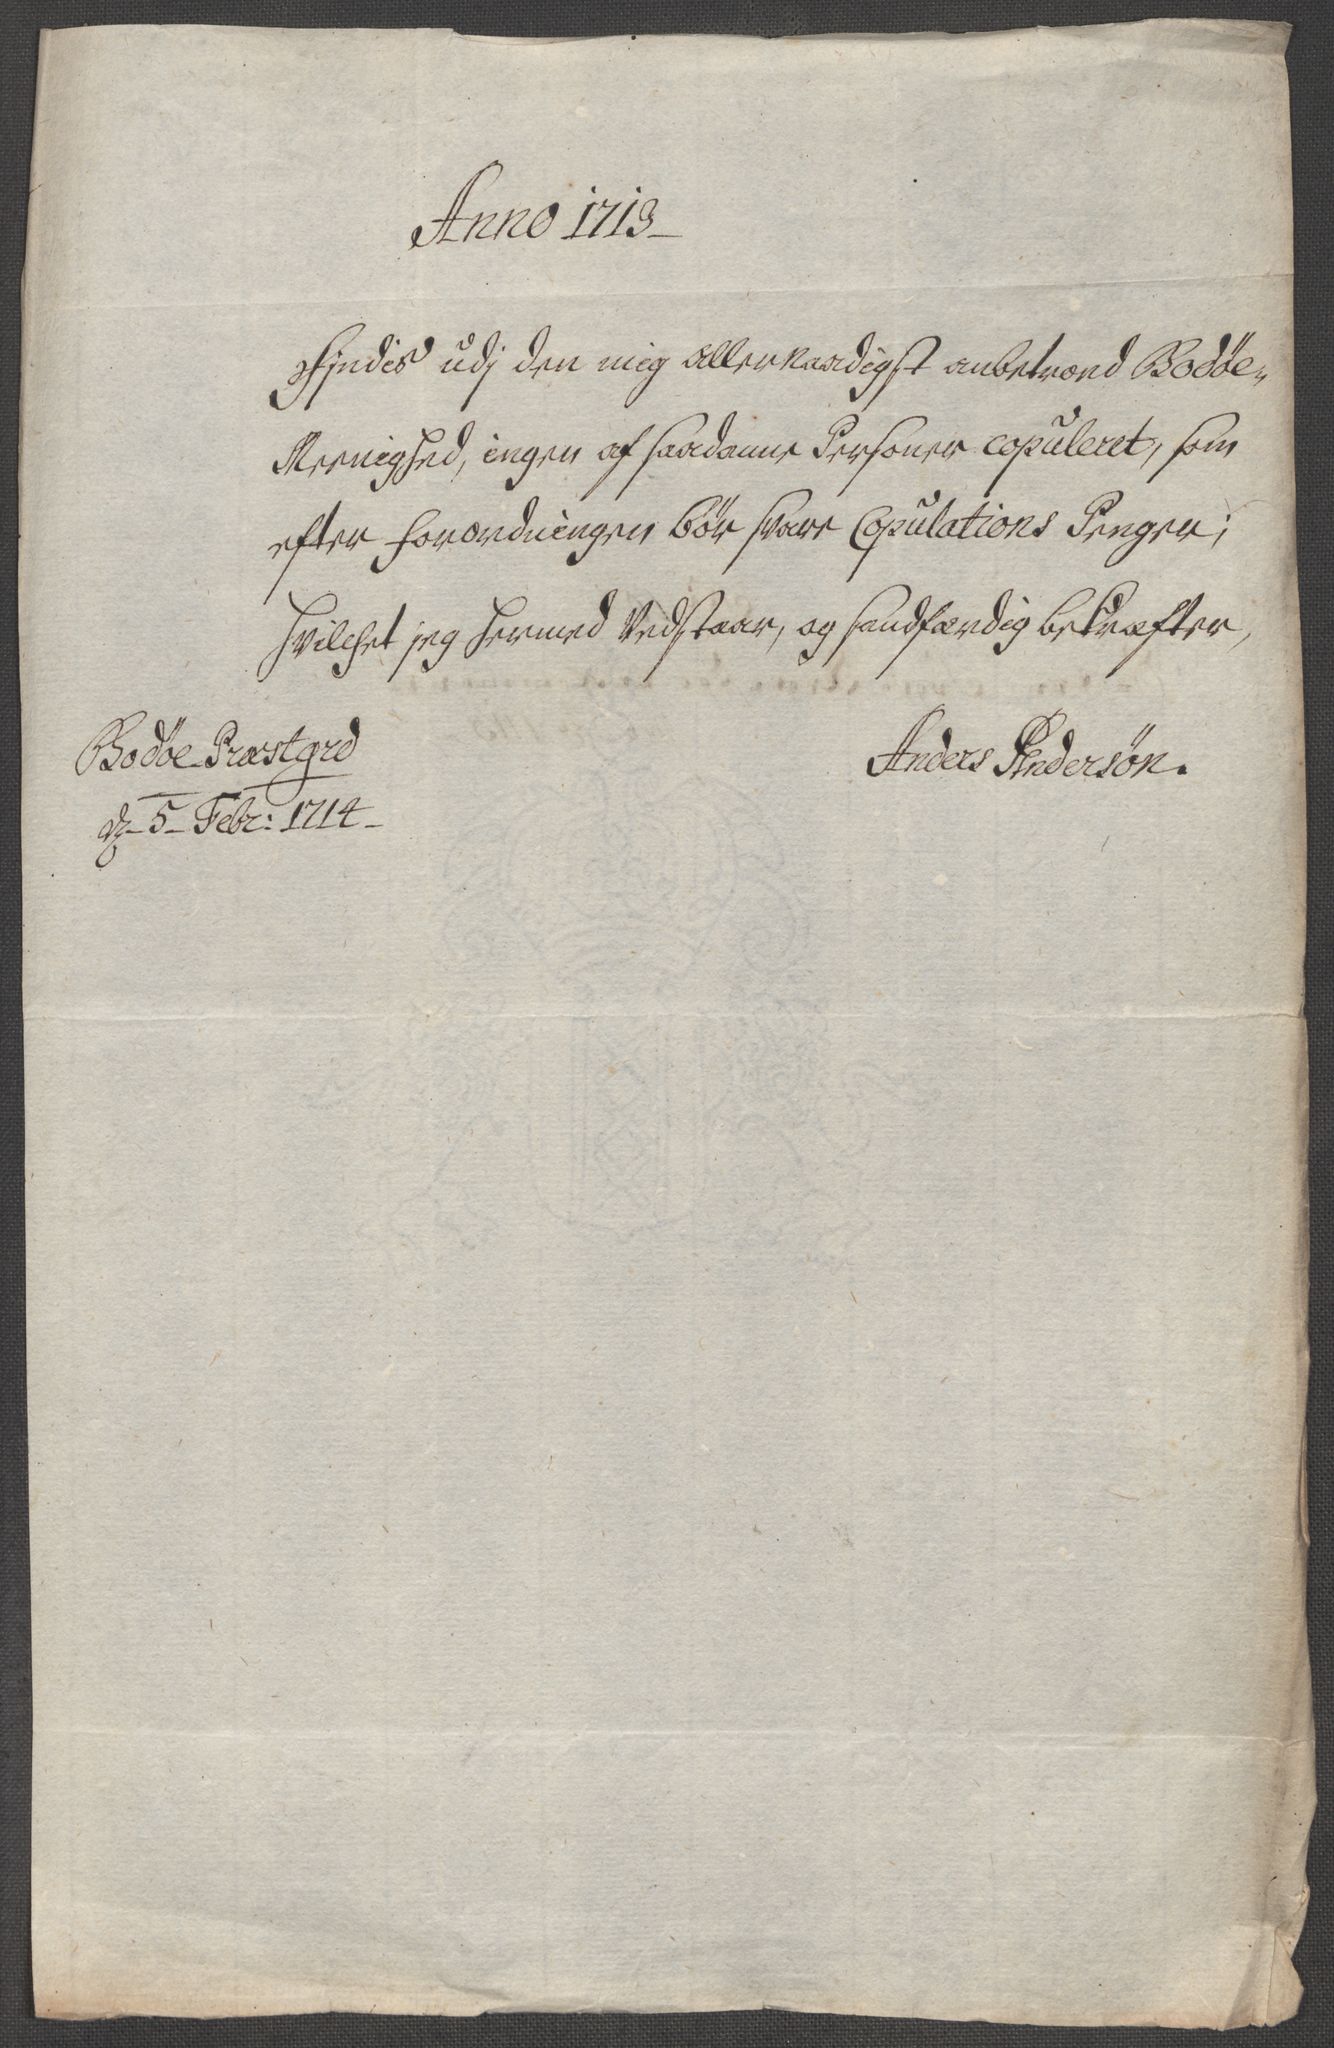 Anno 1713
Findis udj den mig allernaadigst anbetroed Bodøe-
Meenighed, ingen af saadanne Personer copuleret, som
efter forordningen bør svare Copulations Penger;
Hvilchet jeg hermed Vedstaar, og sandfærdig bekræfter,
Bodøe Præstgrd
d. 5 Febr: 1714
Anders Andersøn.